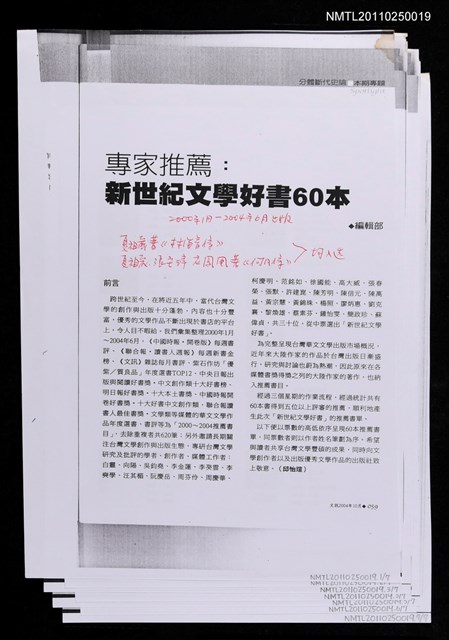 NMTL20110250019
專家推薦：
新世紀文學好書60本
2000年1月－2004年6月出版
◆編輯部
前言
跨世紀至今，在將近五年中，當代台灣文
學的創作與出版十分蓬勃，內容也十分豐
富，優秀的文學作品不斷出現於書店的平台
上，令人目不暇給。我們彙集整理2000年1月
～2004年6月，《中國時報．開卷版》每週書
評，《聯合報．讀書人週報》每週新書金
榜、《文訊》雜誌每月書評、紫石作坊「優
紫／質良品」年度選書TOP12、中央日報出
版與閱讀好書獎、中文創作類十大好書榜、
明日報好書獎、十大本土書獎、中國時報開
卷好書獎、十大好書中文創作類、聯合報讀
書人最佳書獎、文學類等媒體的華文文學作
品年度選書、書評等為「2000～2004推薦書
目」，去除重複者共620筆；另外邀請長期關
注台灣文學創作與出版生態、專研台灣文學
研究及批評的學者、創作者、媒體工作者：
白靈、向陽、吳鈞堯、李金蓮、李癸雲、李
奭學、汪其楣、阮慶岳、周芬伶、周慶華、
柯慶明、范銘如、徐國能、高大威、張春
榮、張默、許建崑、陳芳明、陳信元、陳萬
益、黃宗慧、黃錦珠、楊照、廖炳惠、劉克
襄、鄭煥雄、蔡素芬、鍾怡雯、簡政珍、蘇
偉貞，共三十位，從中票選出「新世紀文學
好書」。
為完整呈現台灣華文文學出版市場概況，
近年來大陸作家的作品於台灣出版日漸盛
行，研究與討論也蔚為熱潮，因此原來在各
媒體書獎得獎之列的大陸作家的著作，也納
入推薦書目。
經過三個星期的作業流程，經過統計共有
60本書得到五位以上評審的推薦，順利地產
生此次「新世紀文學好書」的推薦書單。
以下便以票數的高低依序呈現60本推薦書
單，同票數者則以作者姓名筆劃為序，希望
與讀者共享台灣文學豐碩的成果，同時向文
學創作者以及出版優秀文學作品的出版社致
上敬意。（邱怡瑄）
文訊2004年10月◆059
NMTL20110250019